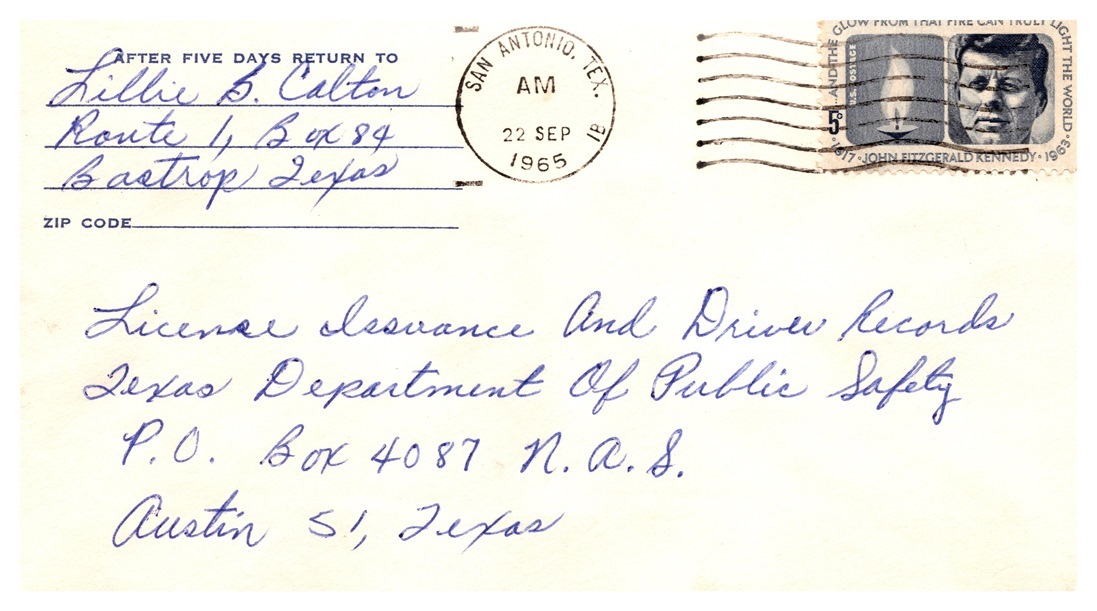 AFTER FIVE DAYS RETURN TO
Lillie B. Calton
Route 1, Box 84
Bastrop Texas
ZIP CODE
SAN ANTONIO, TEX.
AM
22 SEP
1965
1B
...AND THE GLOW FROM THAT FIRE CAN TRULY LIGHT THE WORLD
U.S. POSTAGE
5¢
1917 · JOHN FITZGERALD KENNEDY · 1963
License Issuance And Driver Records
Texas Department Of Public Safety
P.O. Box 4087 N.A.S.
Austin 51, Texas